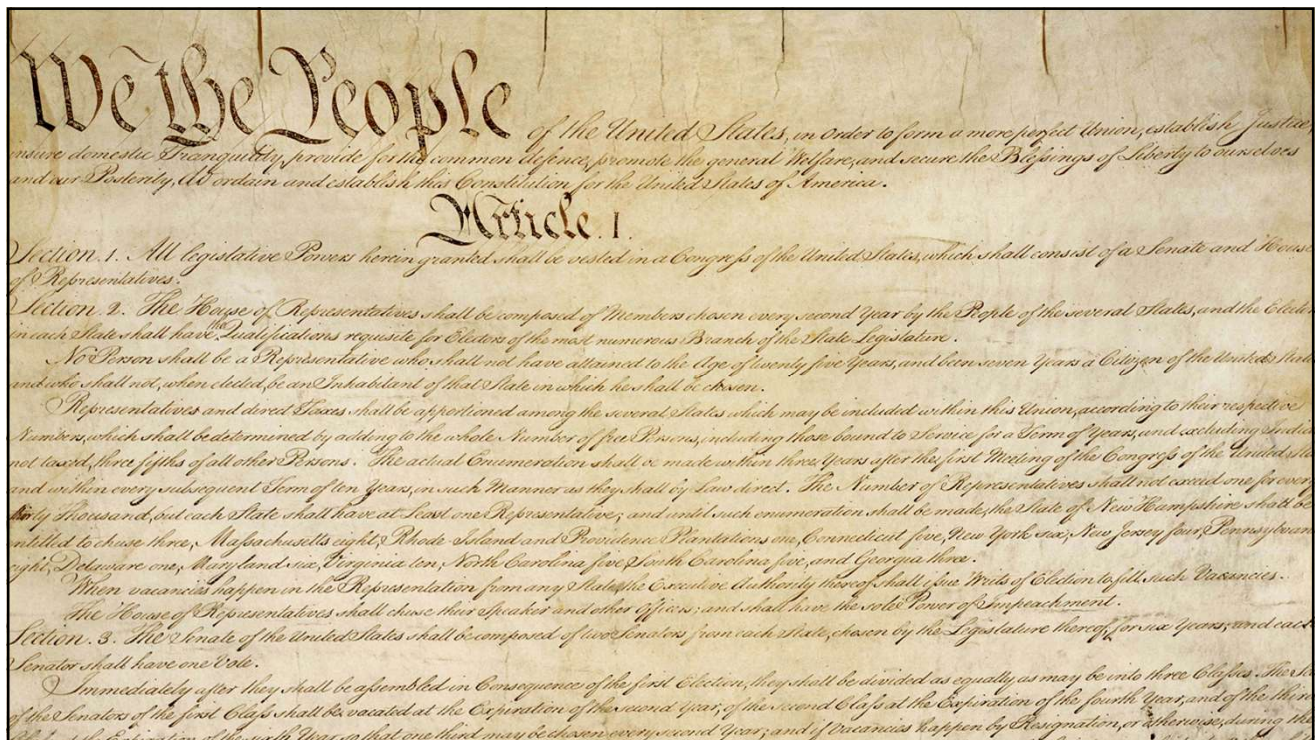 We the People of the United States, in Order to form a more perfect Union, establish Justice,
insure domestic Tranquility, provide for the common defence, promote the general Welfare, and secure the Blessings of Liberty to ourselves
and our Posterity, do ordain and establish this Constitution for the United States of America.
Article. I.
Section. 1. All legislative Powers herein granted shall be vested in a Congress of the United States, which shall consist of a Senate and House
of Representatives.
Section. 2. The House of Representatives shall be composed of Members chosen every second Year by the People of the several States, and the Elector
in each State shall have the Qualifications requisite for Electors of the most numerous Branch of the State Legislature.
No Person shall be a Representative who shall not have attained to the Age of twenty five Years, and been seven Years a Citizen of the United
and who shall not, when elected, be an Inhabitant of that State in which he shall be chosen.
Representatives and direct Taxes shall be apportioned among the several States which may be included within this Union, according to their respective
Numbers, which shall be determined by adding to the whole Number of free Persons, including those bound to Service for a Term of Years, and excluding
not taxed, three fifths of all other Persons. The actual Enumeration shall be made within three Years after the first Meeting of the Congress of the United
and within every subsequent Term of ten Years, in such Manner as they shall by Law direct. The Number of Representatives shall not exceed one for every
thirty Thousand, but each State shall have at Least one Representative; and until such enumeration shall be made, the State of New Hampshire shall be
entitled to chuse three, Massachusetts eight, Rhode-Island and Providence Plantations one, Connecticut five, New York six, New Jersey four, Pennsylvan
eight, Delaware one, Maryland six, Virginia ten, North Carolina five, South Carolina five, and Georgia three.
When vacancies happen in the Representation from any State, the Executive Authority thereof shall issue Writs of Election to fill such Vacancies.
The House of Representatives shall chuse their Speaker and other Officers; and shall have the sole Power of Impeachment.
Section. 3. The Senate of the United States shall be composed of two Senators from each State, chosen by the Legislature thereof, for six Years; and each
Senator shall have one Vote.
Immediately after they shall be assembled in Consequence of the first Election, they shall be divided as equally as may be into three Classes. The
of the Senators of the first Class shall be vacated at the Expiration of the second Year, of the second Class at the Expiration of the fourth Year, and of the third
Expiration of the sixth Year, so that one third may be chosen every second Year; and if Vacancies happen by Resignation, or otherwise, during the